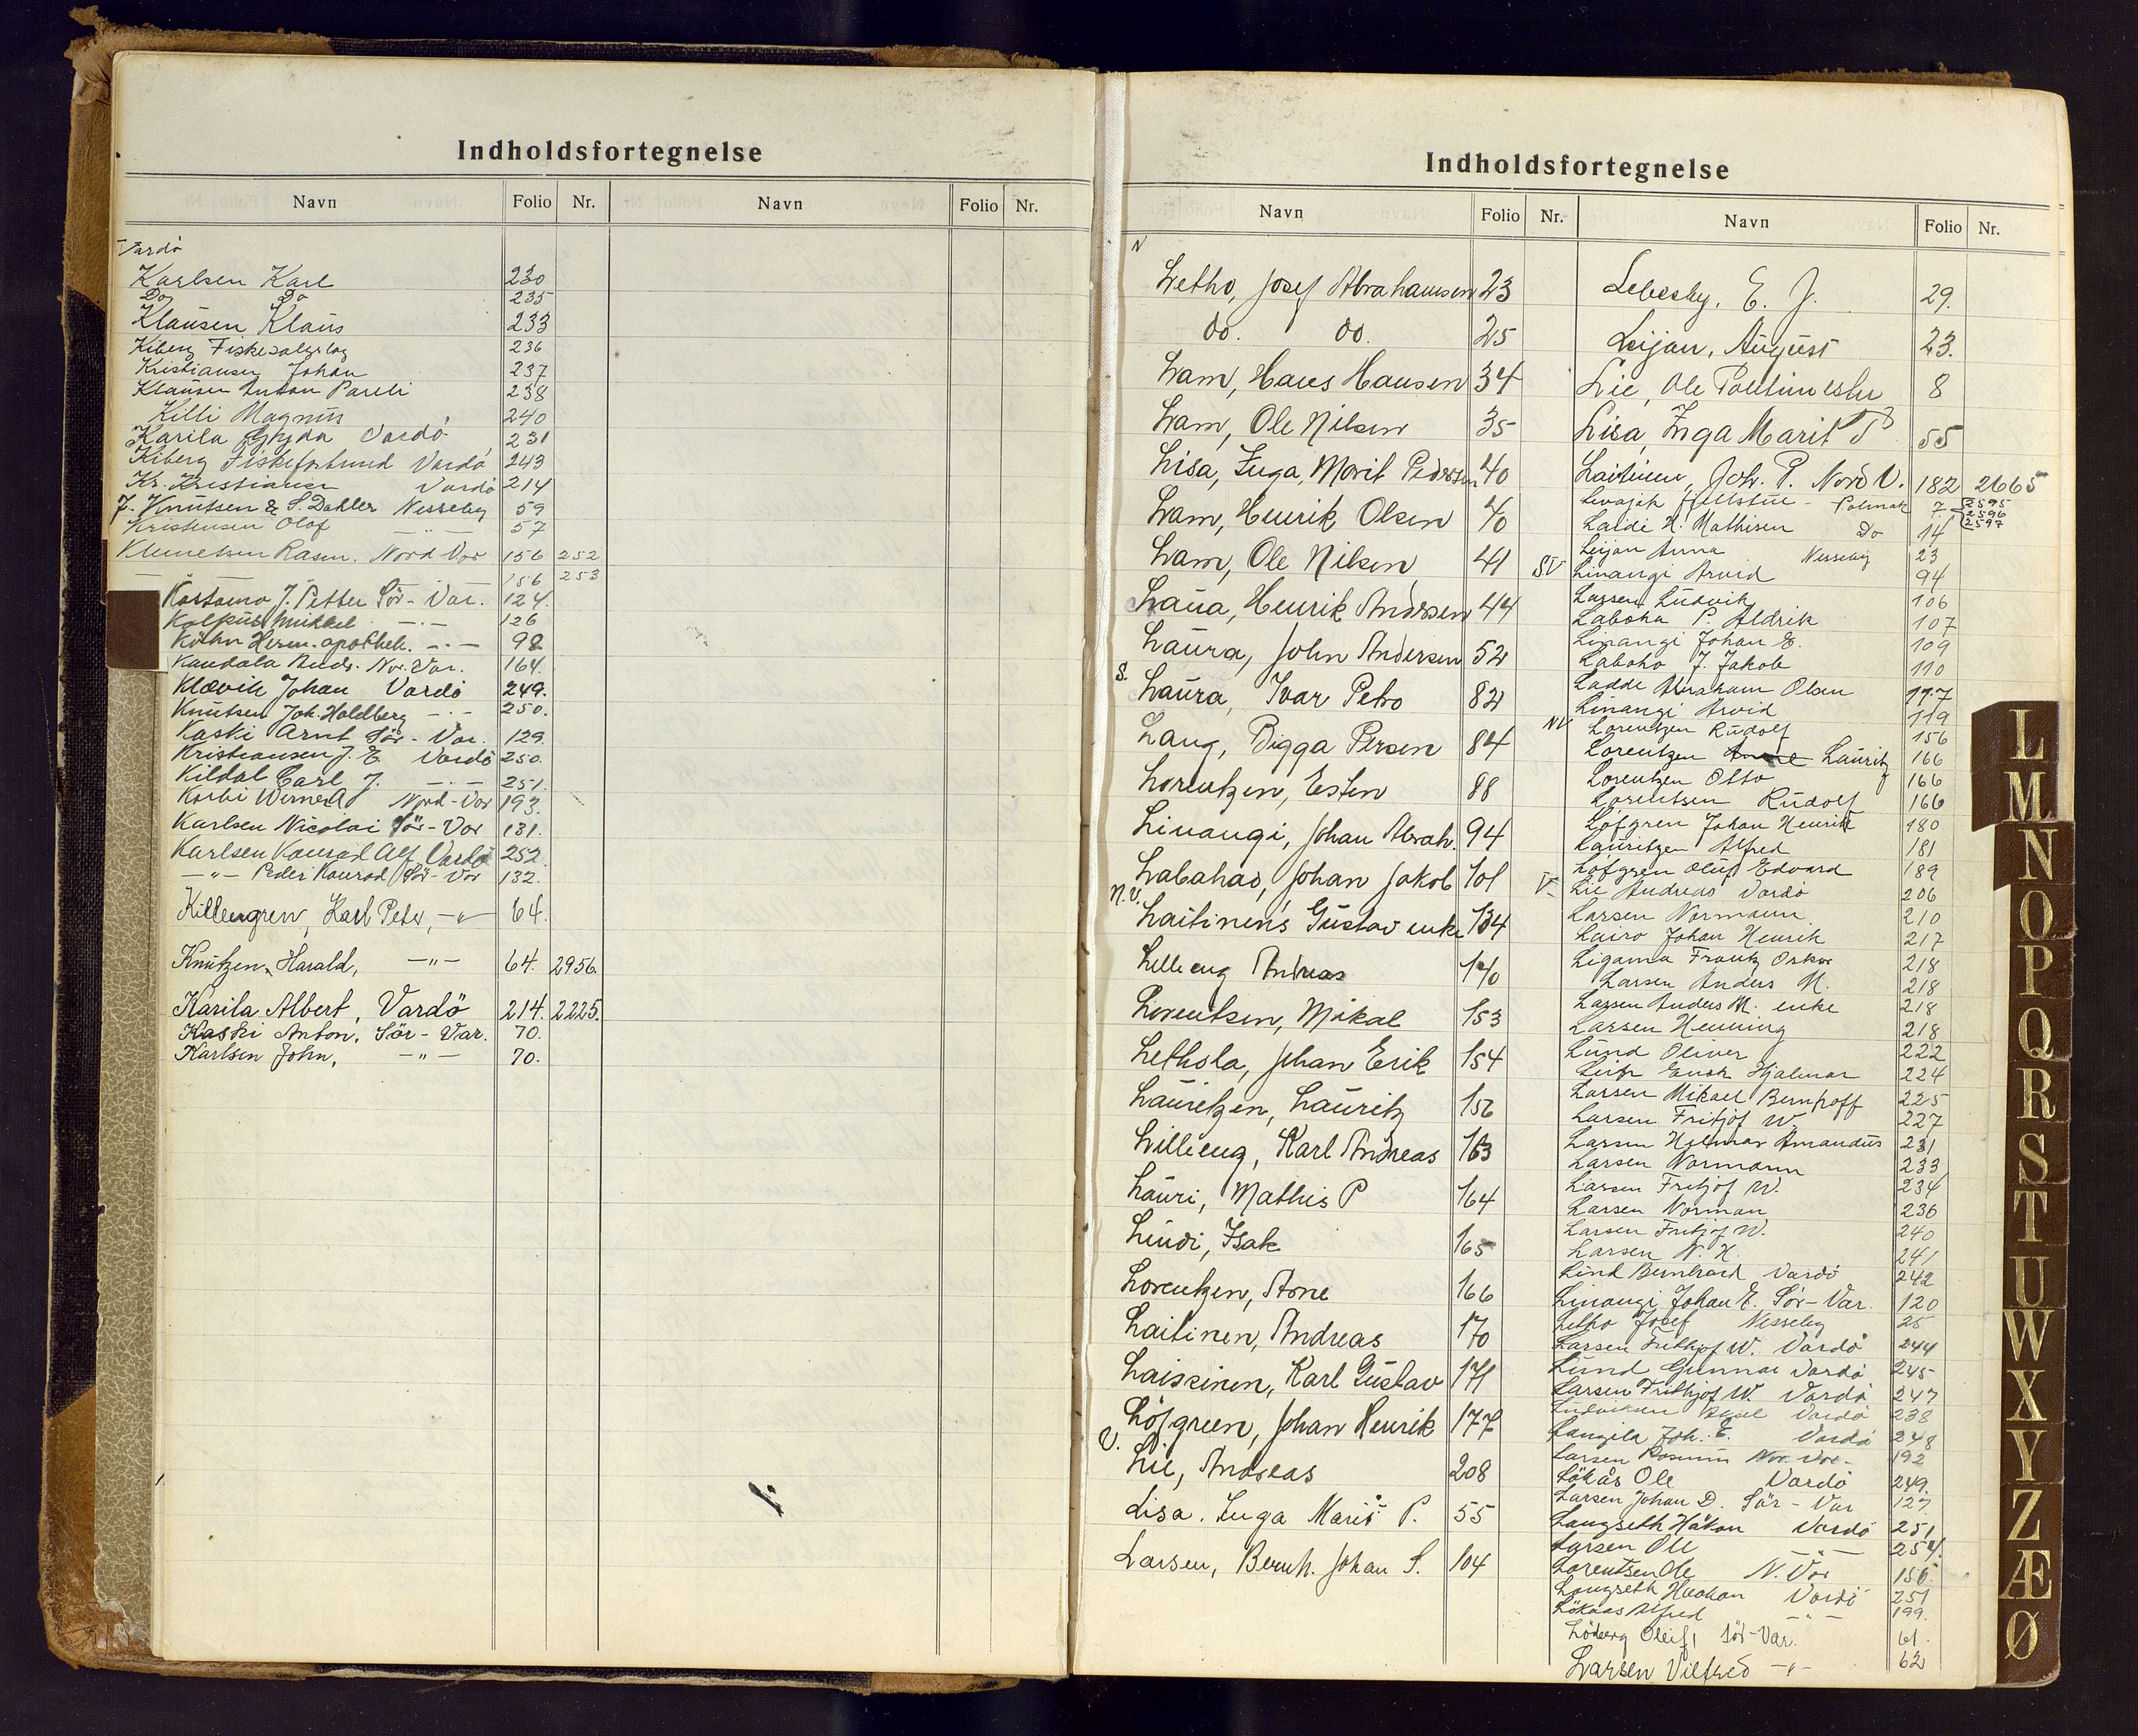 Indholdsfortegnelse
Navn Folio Nr. Navn Folio Nr.
Vardö
Karlsen Karl 230
Do Do 235
Klausen Klaus 233
Kiberg Fiskesalgslag 236
Kristiansen Johan 237
Klausen Anton Pareli 238
Killi Magnus 240
Karila Vardö 231
Kiberg Fiskeforbund Vardö 243
Kr. Kristiansen Vardö 214
J. Knutsen & S. Dahler Nesseby 59
Kristensen Olof — " — 57
Klemetsen Rasm. Nord Var 156 252
— — 156 253
Kostamo J. Petter Sör-Var. 124.
Kolpus Mikkel — " — 126
Kühn Herm. apothek. — " — 98
Kandola Andr. Nor. Var. 164.
Klævik Johan Vardö 249.
Knutsen Joh. Holdberg — " — 250.
Kaski Arnt Sör-Var. 129.
Kristiansen J. E. Vardö 250.
Kildal Carl J. — " — 251.
Korbi Werner A Nord-Var 193.
Karlsen Nicolai Sör-Var 131.
Karlsen Konrad Alf Vardö 252.
— " — Peder Konrad Sör-Var 132.
Killengren, Karl Peter, — " — 64.
Knutzen, Harald, — " — 64. 2956.
Karila Albert, Vardö 214. 2225.
Kaski Anton, Sör-Var. 70.
Karlsen John, — " — 70.
Indholdsfortegnelse
Navn Folio Nr. Navn Folio Nr.
N
Letho, Josef Abrahamsen 23
do. do. 25
Lam, Hans Hansen 34
Lam, Ole Nilsen 35
Lisa, Inga Marit Pedersen 40
Lam, Henrik Olsen 40
Lam, Ole Nilsen 41
Laura, Henrik Andersen 44
Laura, John Andersen 52
S.
Laura, Ivar Petro 82
Lang, Bigga Persen 84
Lorentzen, Esten 88
Linangi, Johan Abrah. 94
Labahao, Johan Jakob 101
N.V.
Laitinen's Gustav enke 134
Lilleeng Andreas 140
Lorentsen, Mikal 153
Lethola, Johan Erik 154
Lauritzen, Lauritz 156
Lilleeng, Karl Andreas 163
Lauri, Mathis P 164
Lindi, Isak 165
Lorentzen, Arne 166
Laitinen, Andreas 170
Laiskinen, Karl Gustav 171
Löfgreen, Johan Henrik 177
V.
Lie, Andreas 208
Lisa. Inga Marit P. 55
Larsen, Bernh. Johan S. 104
Lebesby, E. J. 29.
Leijan, August 23.
Lie, Ole 8
Lisa, Inga Marit P 55
Laitinen, Joh. P. Nord V. 182 2665
Levajok fjellstue - Polmak 7 2595 2596 2597
Laidi N. Mathisen Do 14
Leijan Anna Nesseby 23
SV Linangi Arvid 94
Larsen Ludvik 106
Laboha P. Aldrik 107
Linangi Johan E. 109
Laboho J. Jakob 110
Ladde Abraham Olsen 117
Linangi Arvid 119
NV Lorentzen Rudolf 156
Lorentzen Lauritz 166
Lorentzen Otto 166
Lorentsen Rudolf 166
Löfgren Johan Henrik 180
Lauritzen Alfred 181
Löfgren Oluf Edvard 189
V. Lie Andreas Vardö 206
Larsen Normann 210
Lairo Johan Henrik 217
Ligama Frantz Oskar 218
Larsen Anders M. 218
Larsen Anders M. enke 218
Larsen Henning 218
Lund Oliver 222
Enok Hjalmar 224
Larsen Mikael Bernhoff 225
Larsen Fritjof W. 227
Larsen Hilmar Amandus 231
Larsen Normann 233
Larsen Fritjof W. 234
Larsen Norman 236
Larsen Fritjof W. 240
Larsen N. H. 241
Lind Bernhard Vardö 242
Linangi Johan E. Sör-Var. 120
Letho Josef Nesseby 25
Larsen Frithjof W. Vardö 244
Lund Gunnar Vardö 245
Larsen Frithjof W. Vardö 247
Ludviksen Aksel Vardö 238
Joh. E. Vardö 248
Larsen Nor. Var. 192
Lökås Ole Vardö 249.
Larsen Johan D. Sör-Var 127.
Langseth Håkon Vardö 251.
Larsen Ole — " — 254.
Lorentsen Ole N. Var 156.
Langseth Haakon Vardö 251
Lökaas Alfred — " — 199.
Löberg Oleif, Sör-Var. 61.
Larsen Vilfred — " — 62
L
M
N
O
P
Q
R
S
T
U
W
X
Y
Z
Æ
Ø